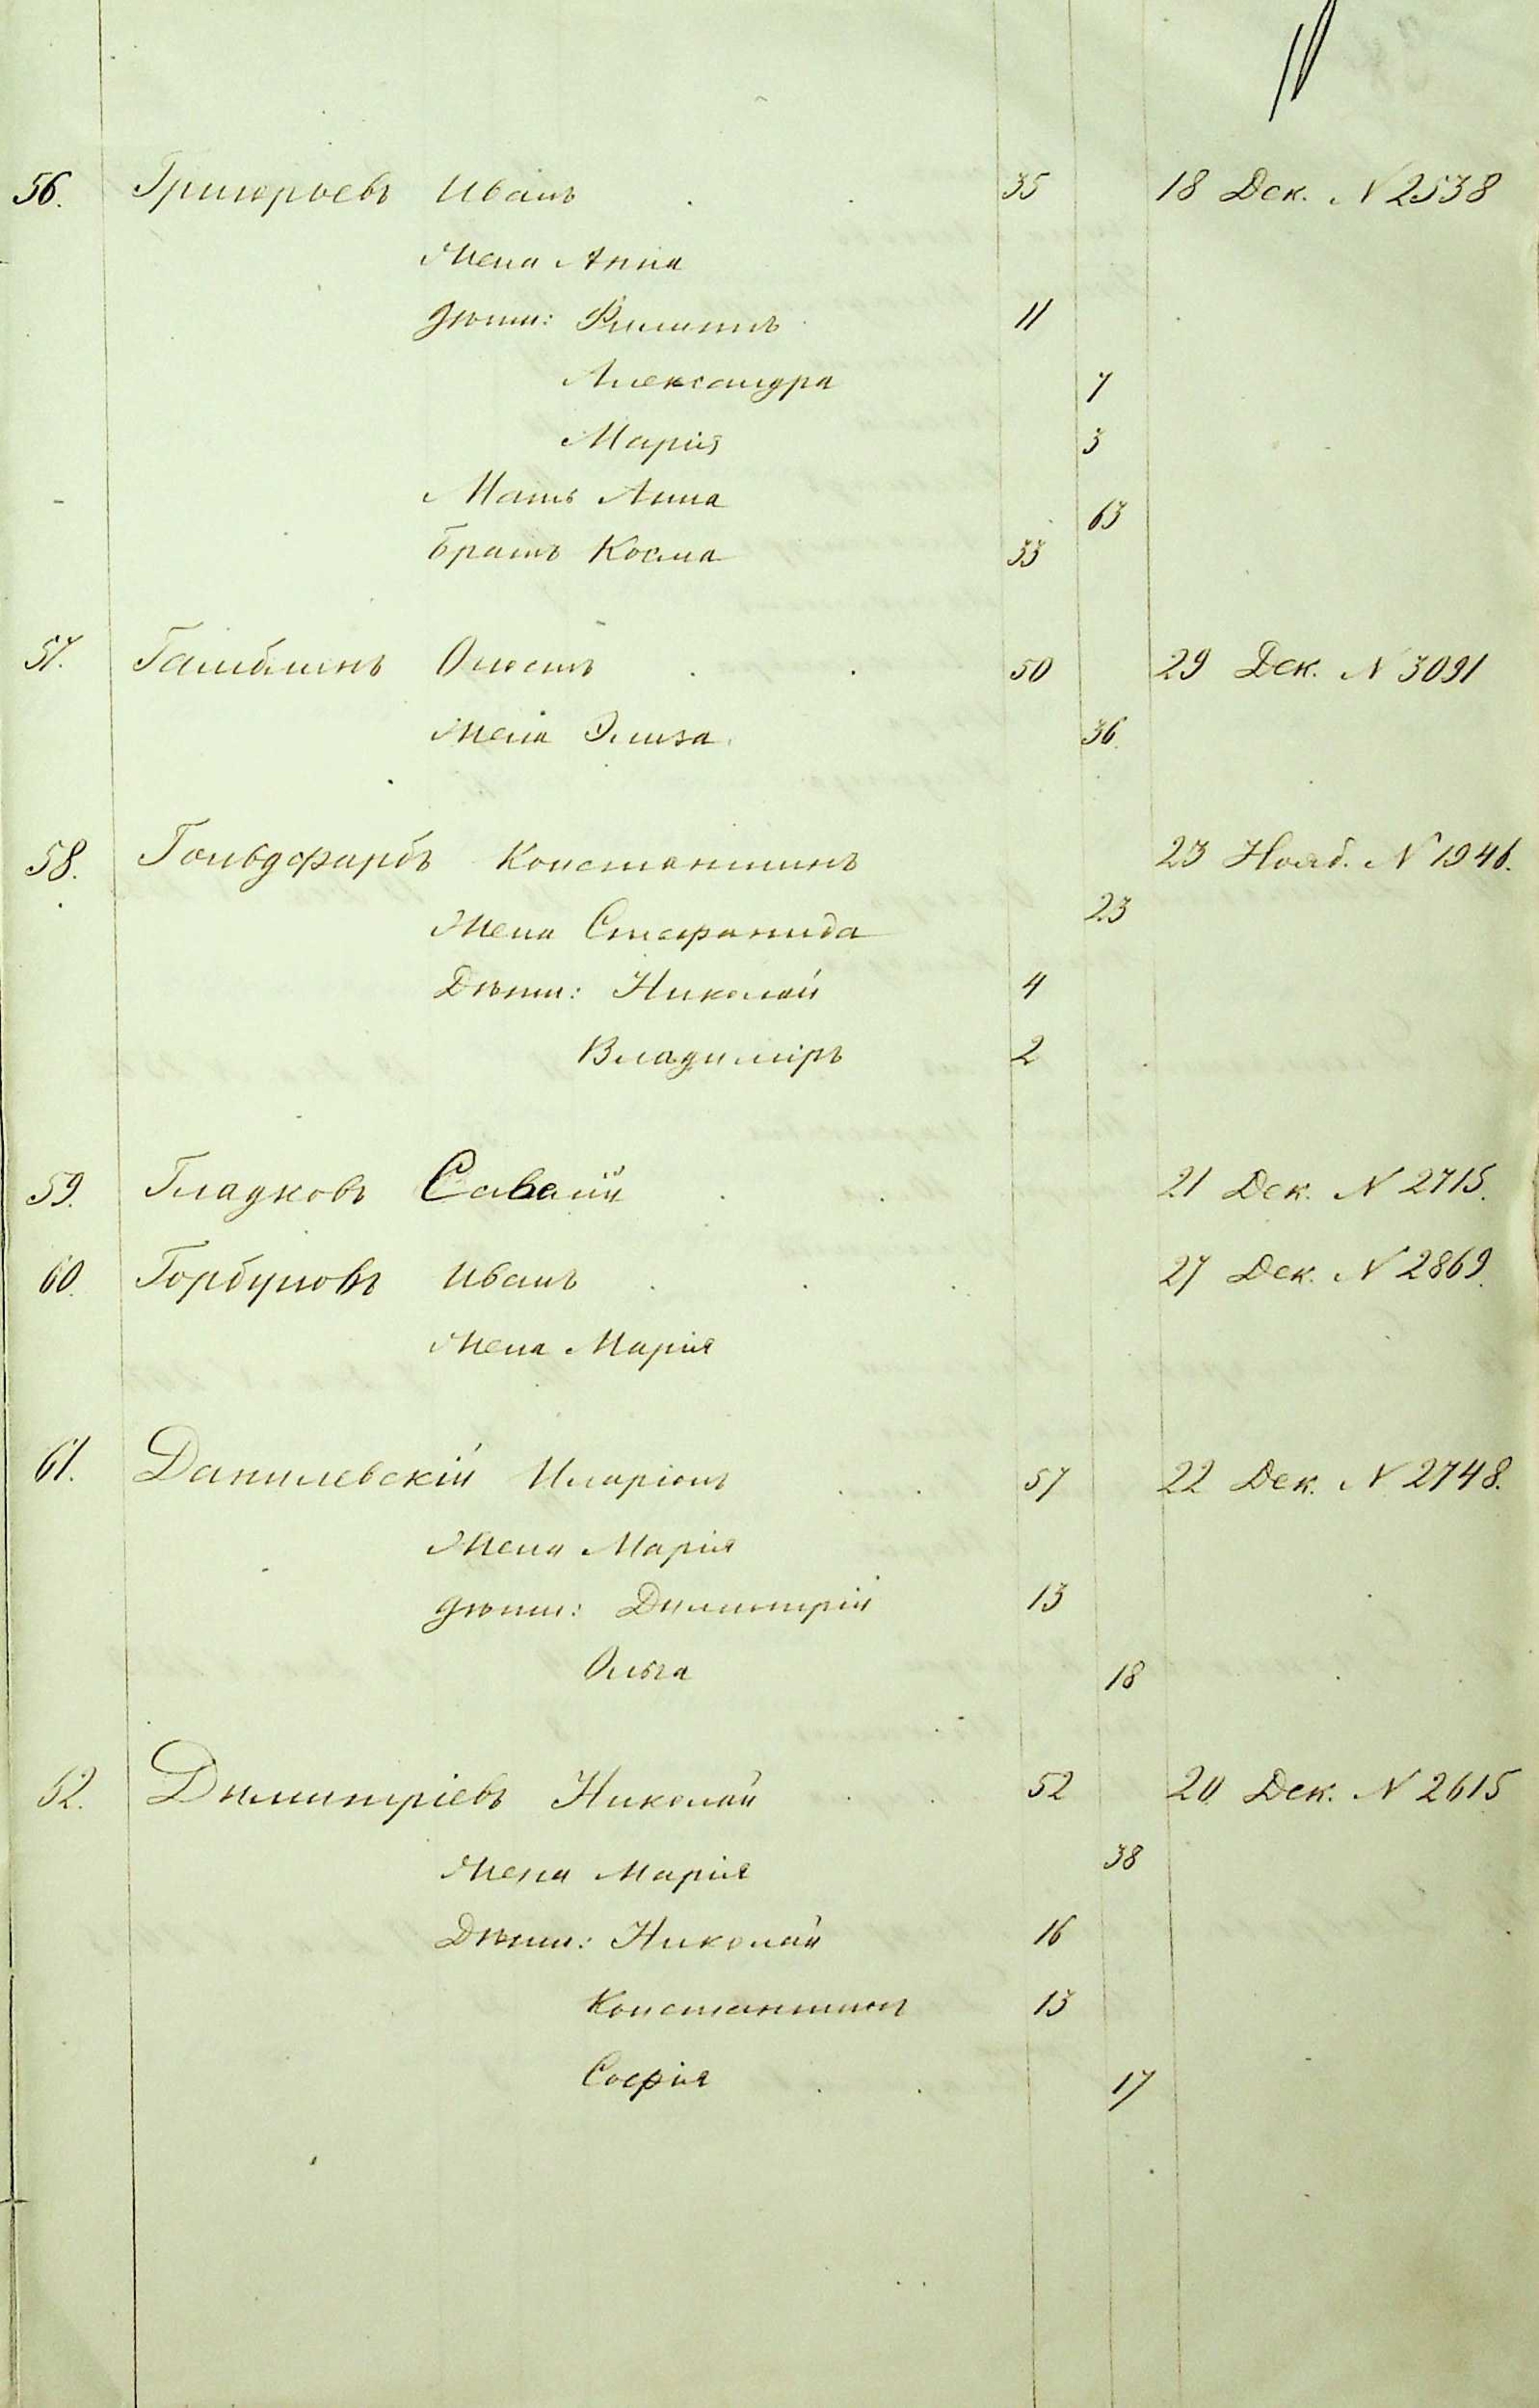 56. Григорьевъ Иванъ 35 18 Дек. N 2538
Жена Анна
дѣти: Филиппъ 11
Александра 7
Марія 3
Мать Анна 63
братъ Косма 33
57. 50 29 Дек. N 3091
Жена Элиза 36
58. Гольдфарбъ Константинъ 23 Нояб. N 1946.
Жена Стефанида 23
Дѣти: Николай 4
Владиміръ 2
59. Гладковъ 21 Дек. N 2715.
60. Горбуновъ Иванъ 27 Дек. N 2869.
Жена Марія
61. Данилевскій Иларіонъ 57 22 Дек. N 2748.
Жена Марія
дѣти: Димитрій 13
Ольга 18
62. Димитріевъ Николай 52 20 Дек. N 2615
Жена Марія 38
Дѣти: Николай 16
Константинъ 13
Софія 17